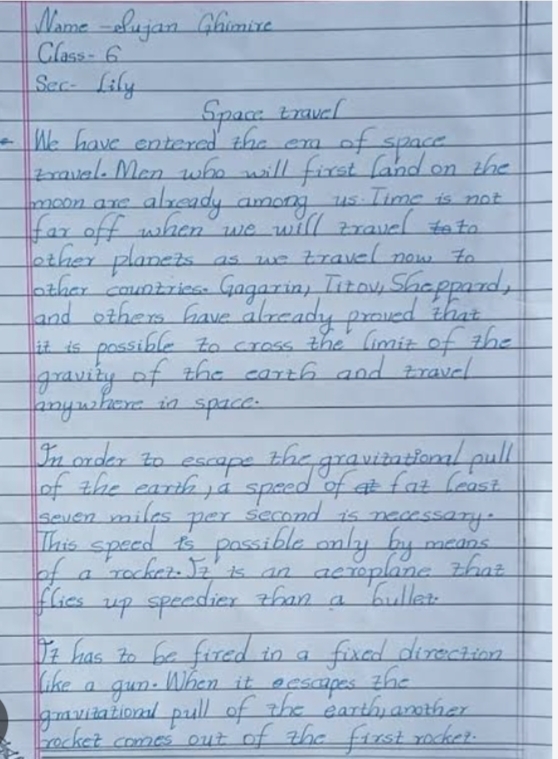 Name - Sujan Ghimire
Class- 6
Sec- Lily
Space travel
We have entered the era of space
travel. Men who will first land on the
moon are already among us. Time is not
far off when we will travel to to
other planets as we travel now to
other countries. Gagarin, Titov, Sheppard,
and others have already proved that
it is possible to cross the limit of the
gravity of the earth and travel
anywhere in space.
In order to escape the gravitational pull
of the earth, a speed of at fat least
seven miles per second is necessary.
This speed is possible only by means
of a rocket. It is an aeroplane that
flies up speedier than a bullet.
It has to be fired in a fixed direction
like a gun. When it eescapes the
gravitational pull of the earth, another
rocket comes out of the first rocket.